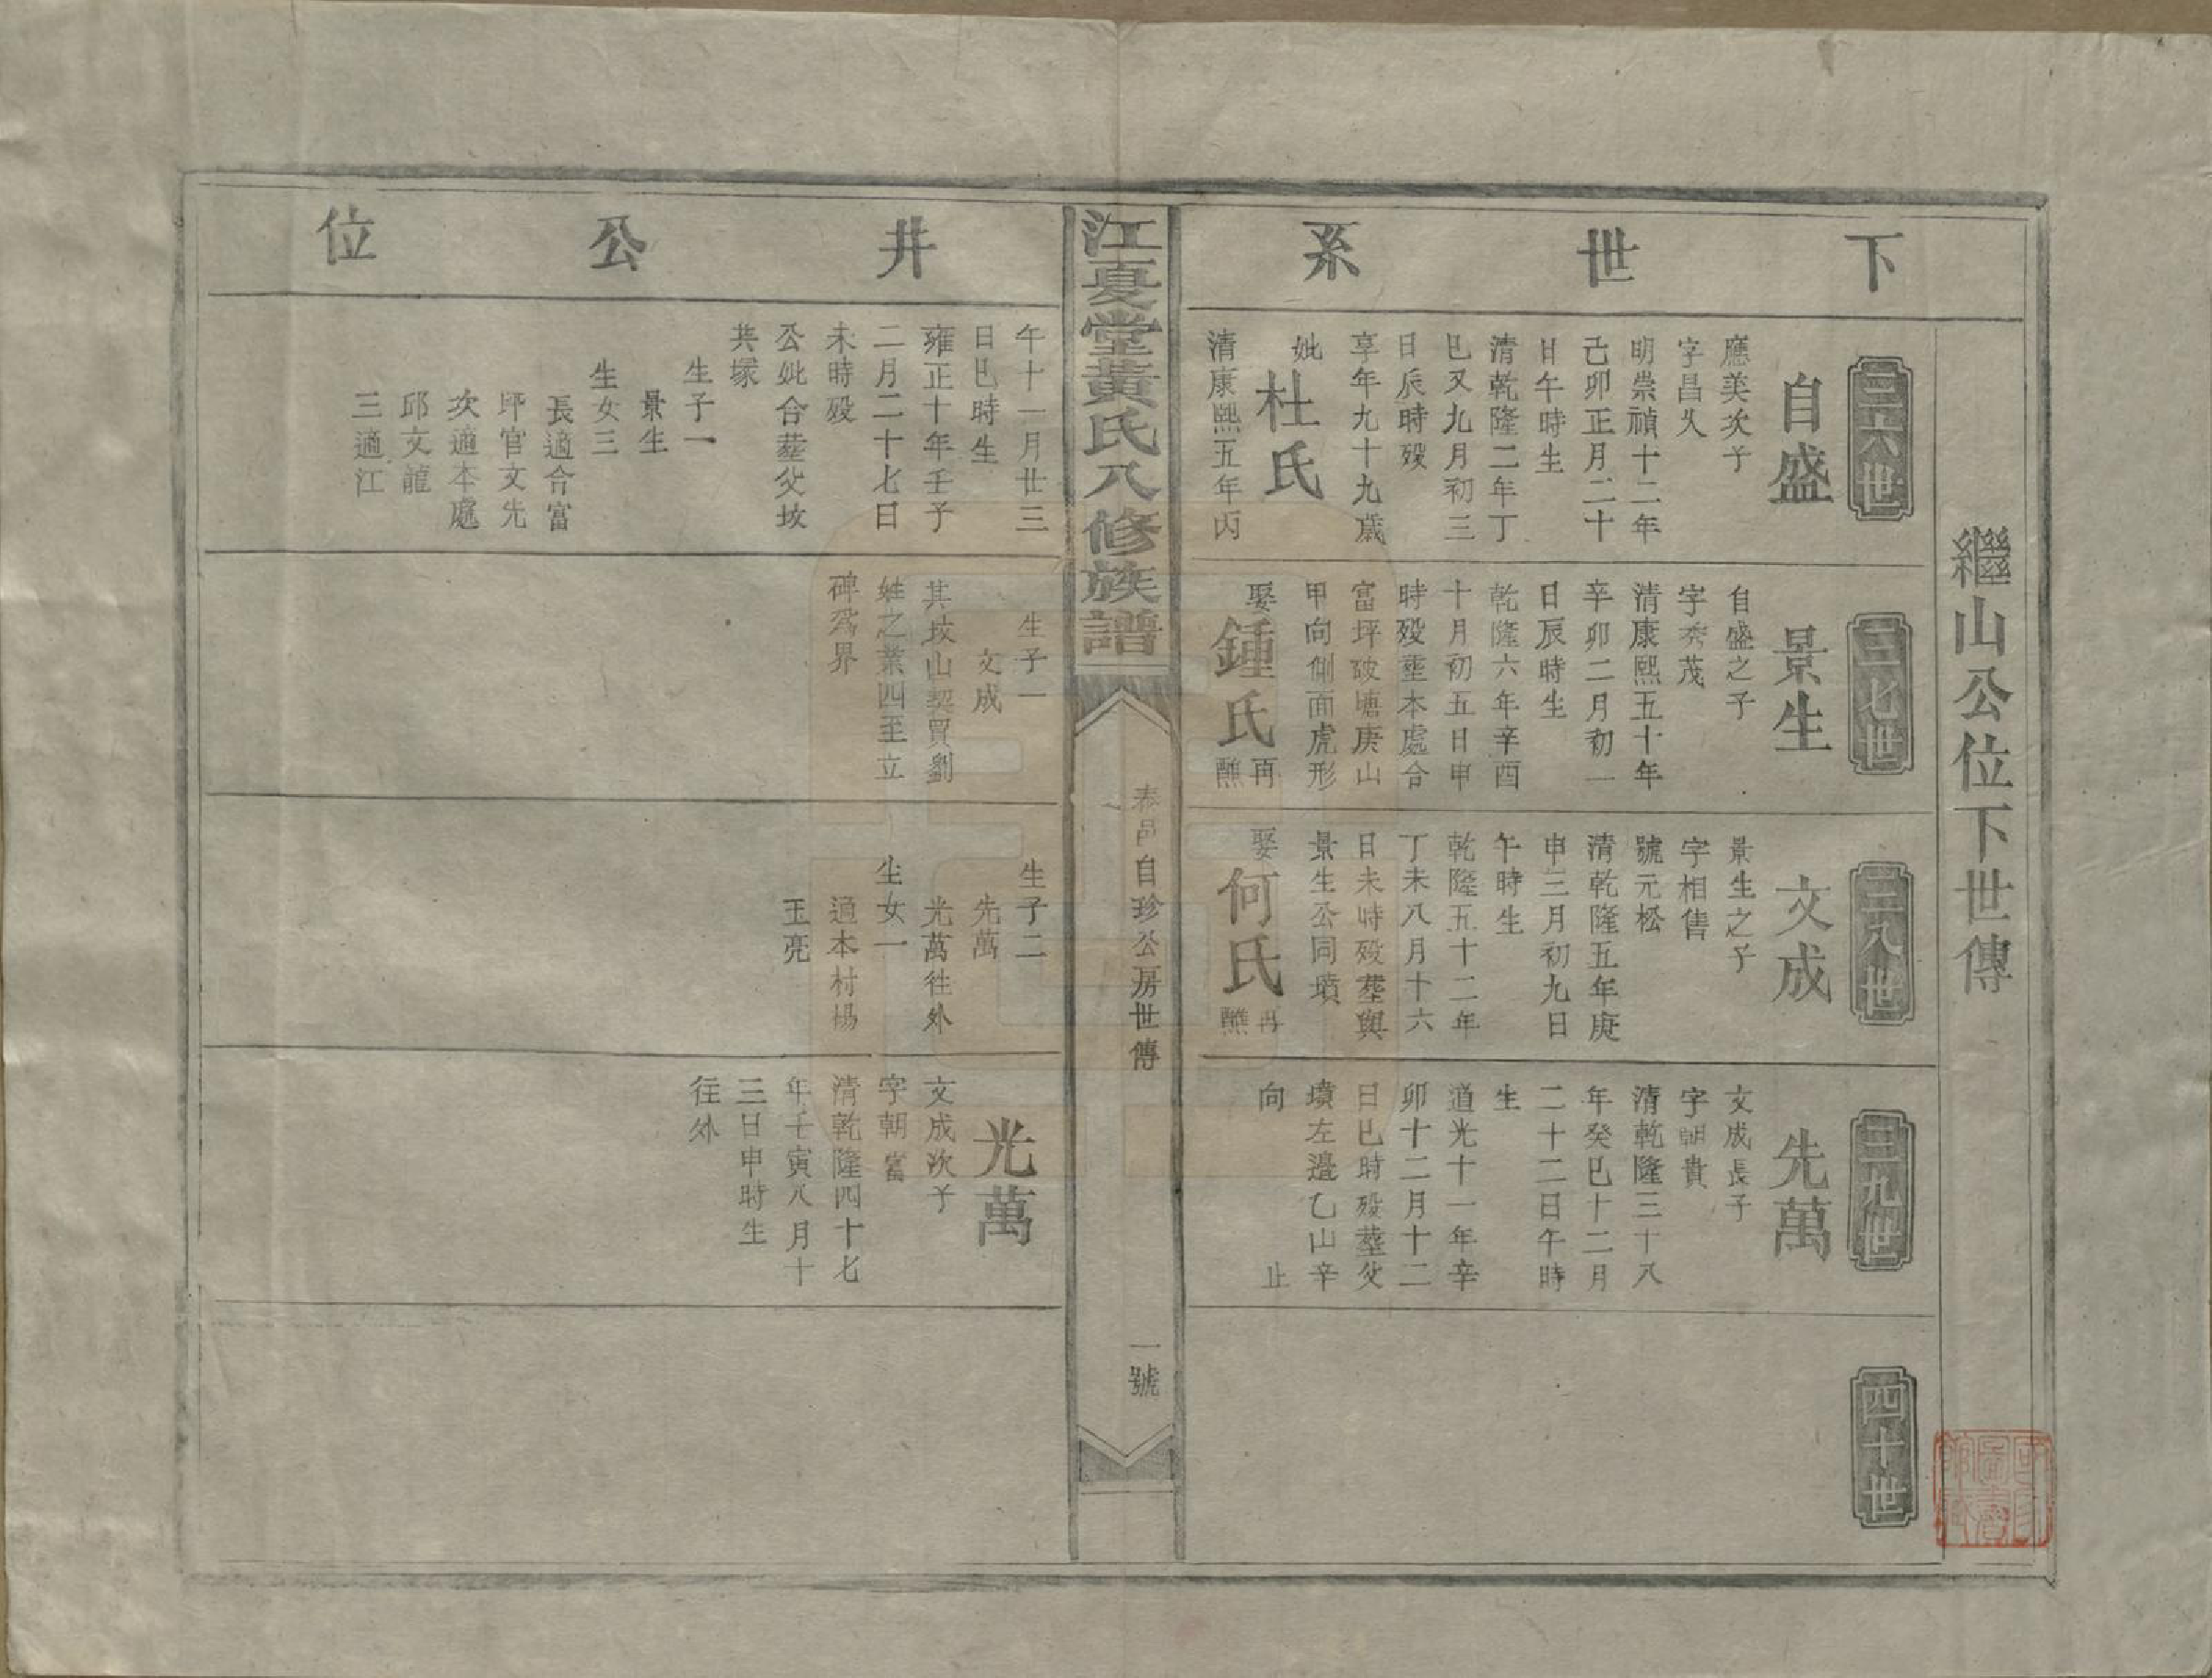 繼山公位下世傳
下世系
三六世
自盛
應美次子
字昌久
明崇禎十二年
己卯正月二十
日午時生
清乾隆二年丁
巳又九月初三
日辰時歿
享年九十九歲
妣杜氏
清康熙五年丙
三七世
景生
自盛之子
字秀茂
清康熙五十年
辛卯二月初一
日辰時生
乾隆六年辛酉
十月初五日申
時歿塟本處合
富坪破塘庚山
甲向側面虎形
娶鍾氏再
醮
三八世
文成
景生之子
字相售
號元松
清乾隆五年庚
申三月初九日
午時生
乾隆五十二年
丁未八月十六
日未時歿塟與
景生公同墳
娶何氏再
醮
三九世
先萬
文成長子
字朝貴
清乾隆三十八
年癸巳十二月
二十二日午時
生
道光十一年辛
卯十二月十二
日巳時歿塟父
墳左邊乙山辛
向 止
四十世
江夏堂黃氏八修族譜
泰呂自珍公房世傳
一號
井公位
午十一月廿三
日巳時生
雍正十年壬子
二月二十七日
未時歿
公妣合塟父坟
共塚
生子一
景生
生女三
長適合富
坪官文先
次適本處
邱文龍
三適江
生子一
文成
其坟山契買劉
姓之業四至立
碑為界
生子二
先萬
光萬往外
生女一
適本村楊
玉亮
光萬
文成次子
字朝富
清乾隆四十七
年壬寅八月十
三日申時生
往外